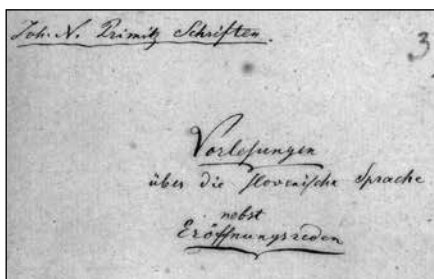 Joh. N. Primitz Schriften.
3
Vorlesungen
über die slovenische Sprache
nebst
Eröffnungsreden